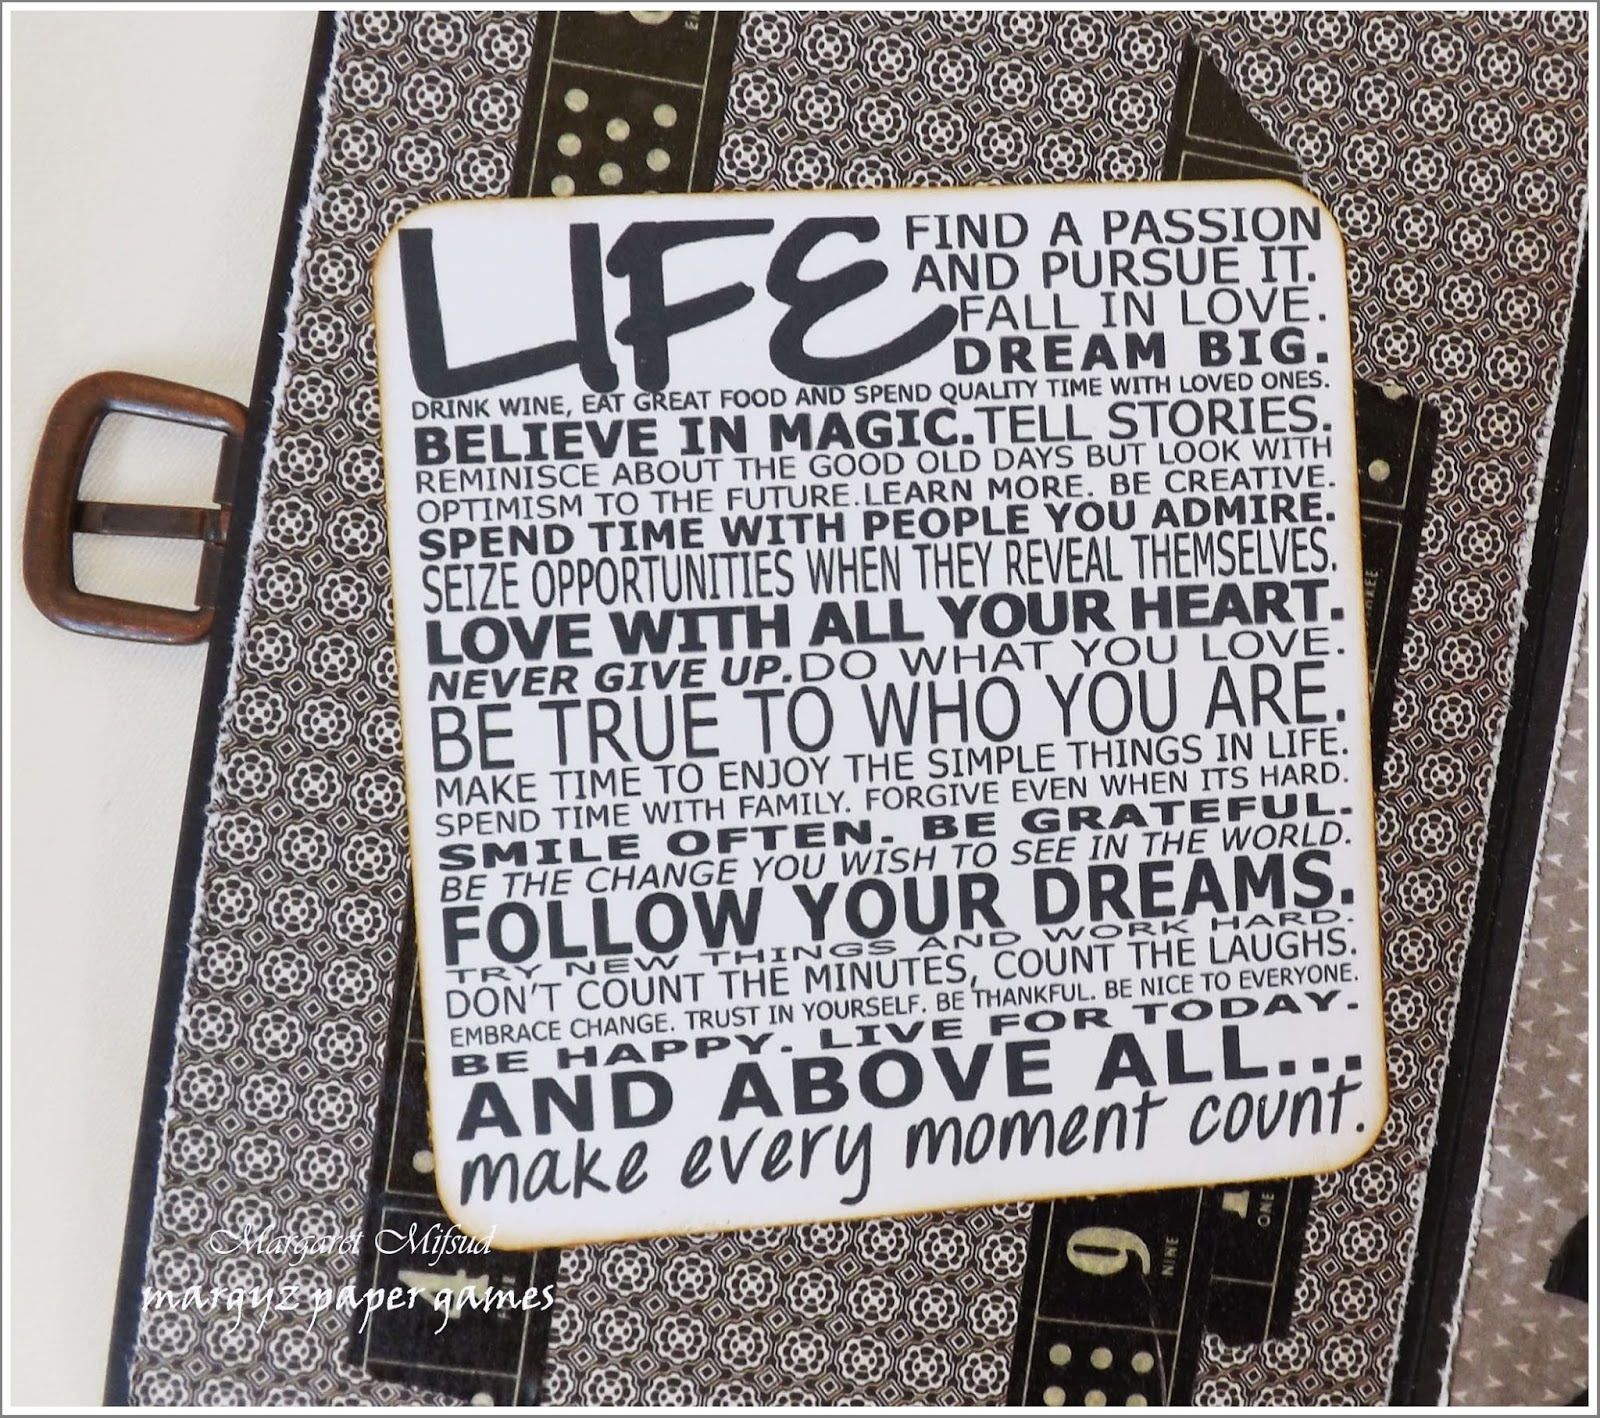 LIFE
FIND A PASSION
AND PURSUE IT.
FALL IN LOVE.
DREAM BIG.
DRINK WINE, EAT GREAT FOOD AND SPEND QUALITY TIME WITH LOVED ONES.
BELIEVE IN MAGIC. TELL STORIES.
REMINISCE ABOUT THE GOOD OLD DAYS BUT LOOK WITH
OPTIMISM TO THE FUTURE. LEARN MORE. BE CREATIVE.
SPEND TIME WITH PEOPLE YOU ADMIRE.
SEIZE OPPORTUNITIES WHEN THEY REVEAL THEMSELVES.
LOVE WITH ALL YOUR HEART.
NEVER GIVE UP. DO WHAT YOU LOVE.
BE TRUE TO WHO YOU ARE.
MAKE TIME TO ENJOY THE SIMPLE THINGS IN LIFE.
SPEND TIME WITH FAMILY. FORGIVE EVEN WHEN ITS HARD.
SMILE OFTEN. BE GRATEFUL.
BE THE CHANGE YOU WISH TO SEE IN THE WORLD.
FOLLOW YOUR DREAMS.
TRY NEW THINGS AND WORK HARD.
DON'T COUNT THE MINUTES, COUNT THE LAUGHS.
EMBRACE CHANGE. TRUST IN YOURSELF. BE THANKFUL. BE NICE TO EVERYONE.
BE HAPPY. LIVE FOR TODAY.
AND ABOVE ALL...
make every moment count.
9
NINE
1
ONE
4
Margaret Mifsud
margyz paper games